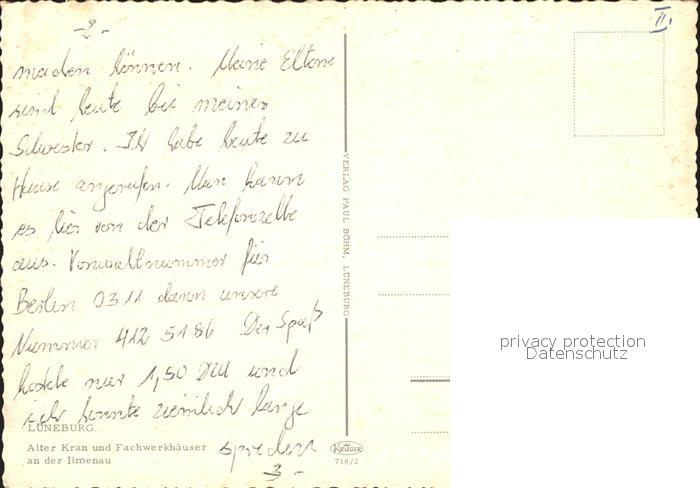 -2-
II.
machen können. Meine Eltern
sind heute bei meiner
Schwester. Ich habe heute zu
Hause angerufen. Man kann
es hier von der Telefonzelle
aus. Vorwahlnummer für
Berlin 0311 dann unsere
Nummer 412 5186 Der Spaß
kostete nur 1,50 DM und
ich konnte ziemlich lange
sprechen
-3-
LÜNEBURG.
Alter Kran und Fachwerkhäuser
an der Ilmenau
VERLAG PAUL BÖHM, LÜNEBURG
KRÜGER
718/2
privacy protection
Datenschutz